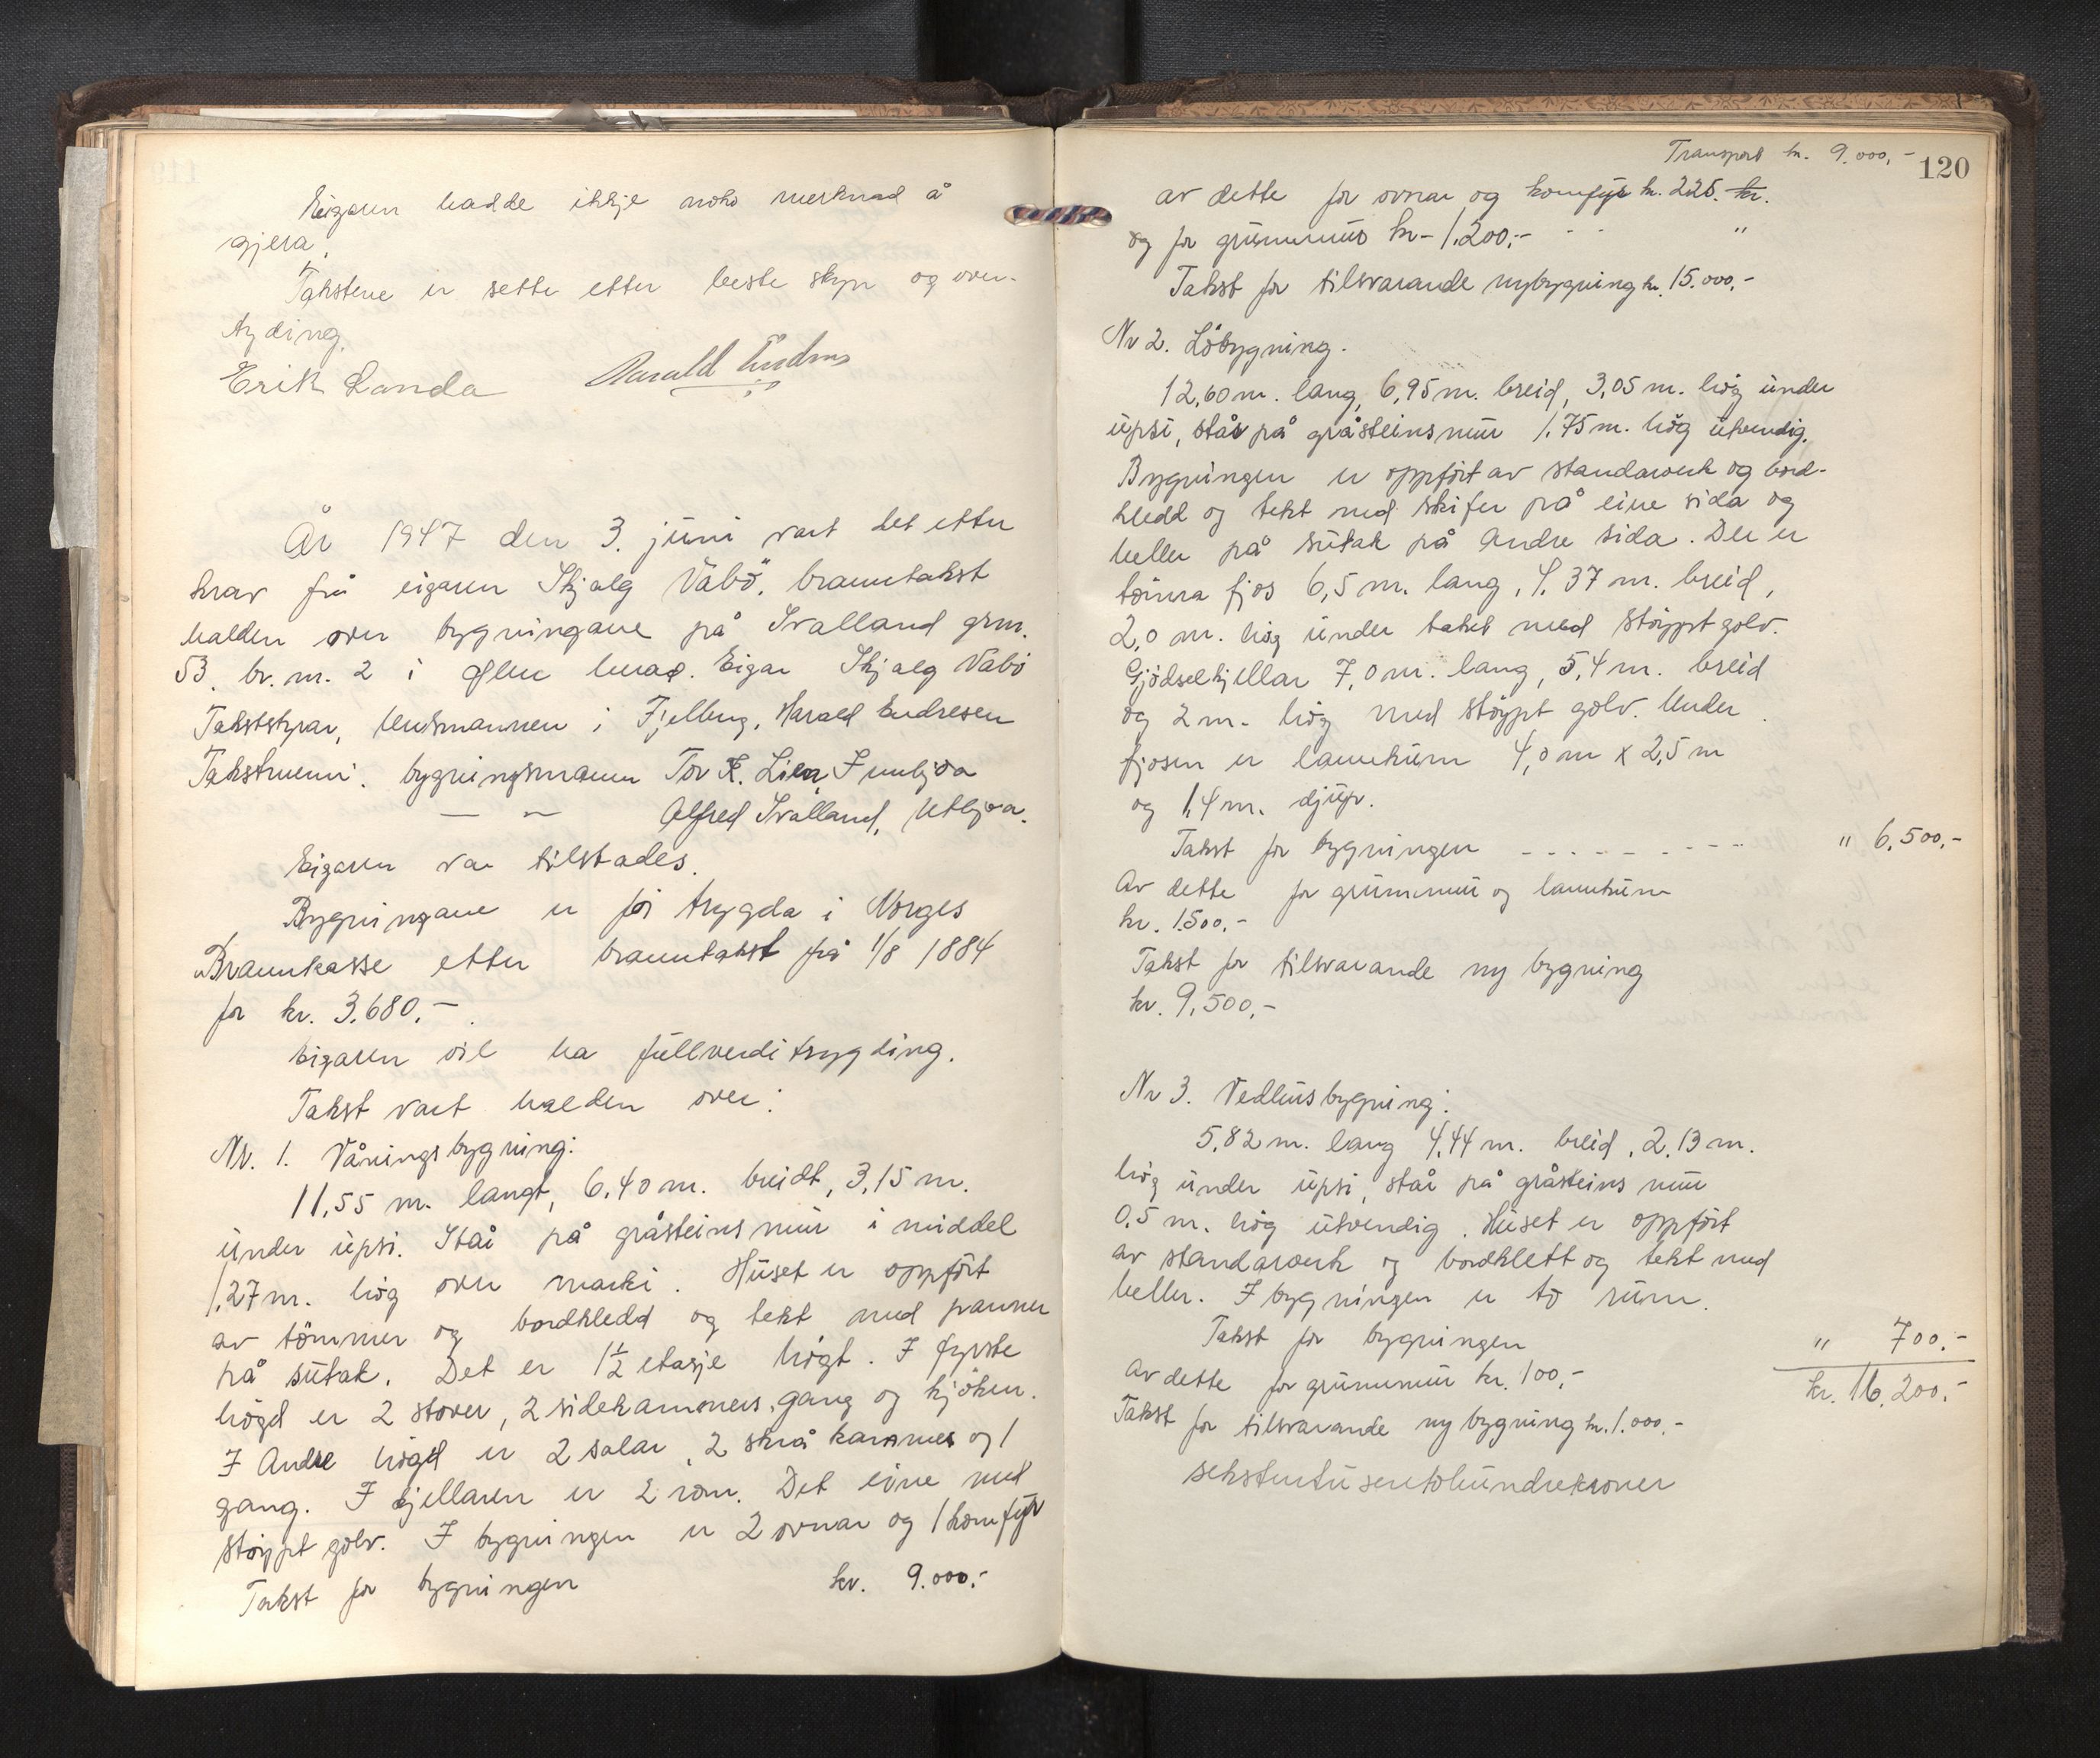 Eigaren hadde ikkje noko merknad å
gjera.
Takstene er sette etter beste skyn og over-
tyding.
Erik Landa Harald Endresen
År 1947 den 3. juni vart det etter
krav frå eigaren Skjalg Vabö, branntakst
halden over bygningane på Svalland grnr.
53. br.nr. 2 i Ølen herad. Eigar Skjalg Vabö
Takststyrar, lensmannen i Fjelberg, Harald Endresen
Takstmenn: bygningsmann Tor K. Lien, Innbjoa
— " — Alfred Svalland, Utbjoa.
Eigaren var tilstades.
Bygningane er för trygda i Norges
Brannkasse etter branntakst frå 1/8 1884
for kr. 3.680.-.
Eigaren vil ha fullverditrygding.
Takst vart halden over:
Nr. 1. Våningsbygning:
11,55 m. langt, 6.40 m. breidt, 3,15 m.
under upsi. Står på gråsteinsmur i middel
1,27 m. hög over marki. Huset er oppfört
av tömmer og bordkledd og tekt med panner
på sutak. Det er 1½ etasje högt. I fyrste
högd er 2 stover, 2 sidekammers, gang og kjöken.
I Andre högd er 2 salar, 2 skrå kammers og 1
gang. I kjellaren er 2 rom. Det eine med
stöypt golv. I bygningen er 2 ovnar og 1 komfyr
Takst for bygningen kr. 9.000.-
Transport kr. 9.000,-
120
av dette for ovnar og komfyr kr. 225.- kr.
og for grunnmur kr- 1.200,- - - "
Takst for tilsvarande nybygning kr. 15.000,-
Nr 2. Löbygning.
12,60 m. lang, 6,95 m. breid, 3,05 m. hög under
upsi, står på gråsteinsmur 1.75 m. hög utvendig.
Bygningen er oppfört av standarverk og bord-
kledd og tekt med skifer på eine sida og
heller på sutak på Andre sida. Der er
tömra fjos 6,5 m. lang, 4,37 m. breid,
2,0 m. hög under taket med stöypt golv.
Gjödselkjellar 7,0 m. lang, 5,4 m. breid
og 2 m. hög med stöypt golv. Under
fjosen er lannkum 4,0 m x 2,5 m
og 1,4 m. djup.
Takst for bygningen - - - - - - - - - " 6,500,-
Av dette for grunnmur og lannkum
kr. 1.500,-
Takst for tilsvarande ny bygning
kr. 9,500,-
Nr 3. Vedhusbygning:
5,82 m. lang 4,44 m. breid, 2,13 m.
hög under upsi, står på gråsteins mur
0,5 m. hög utvendig. Huset er oppfört
av standarverk og bordklett og tekt med
heller. I bygningen er to rum.
Takst for bygningen " 700,-
Av dette for grunnmur kr. 100,- kr. 16.200,-
Takst for tilsvarande ny bygning kr. 1.000,-
sekstentusentohundrekroner